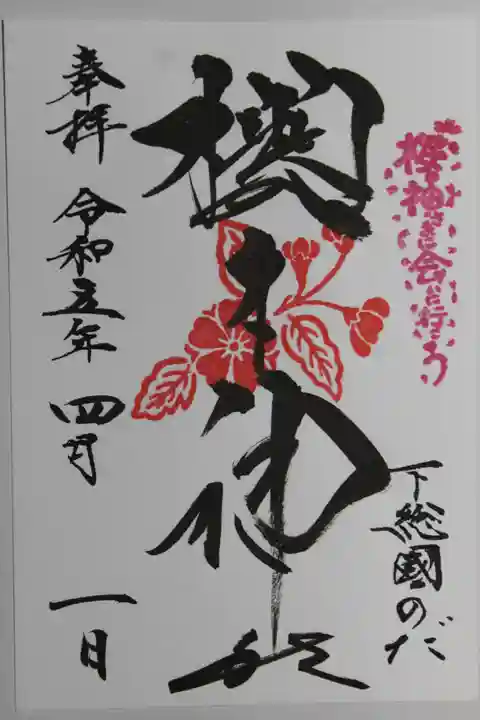 櫻の神さまに会いに行こう
下総國のだ
櫻木神社
奉拝 令和五年 四月 一日